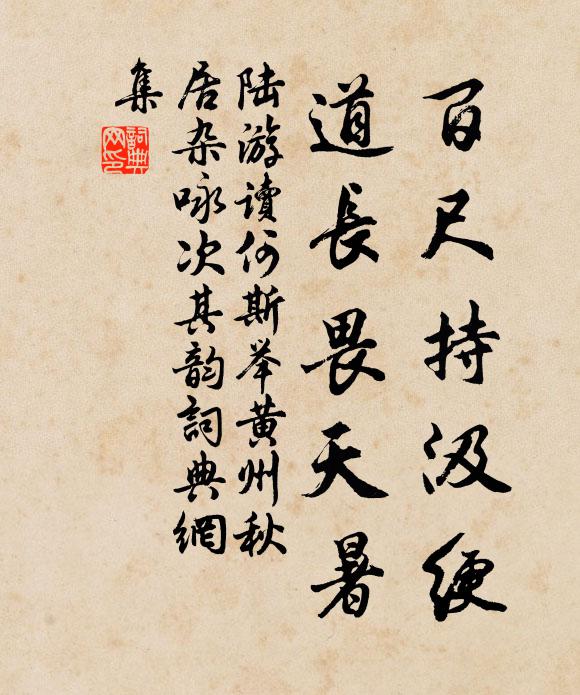 百尺持汲绠
道長畏天暑
陆游讀何斯举黄州秋
居杂咏次其韵詞典網
集
詞典
网印